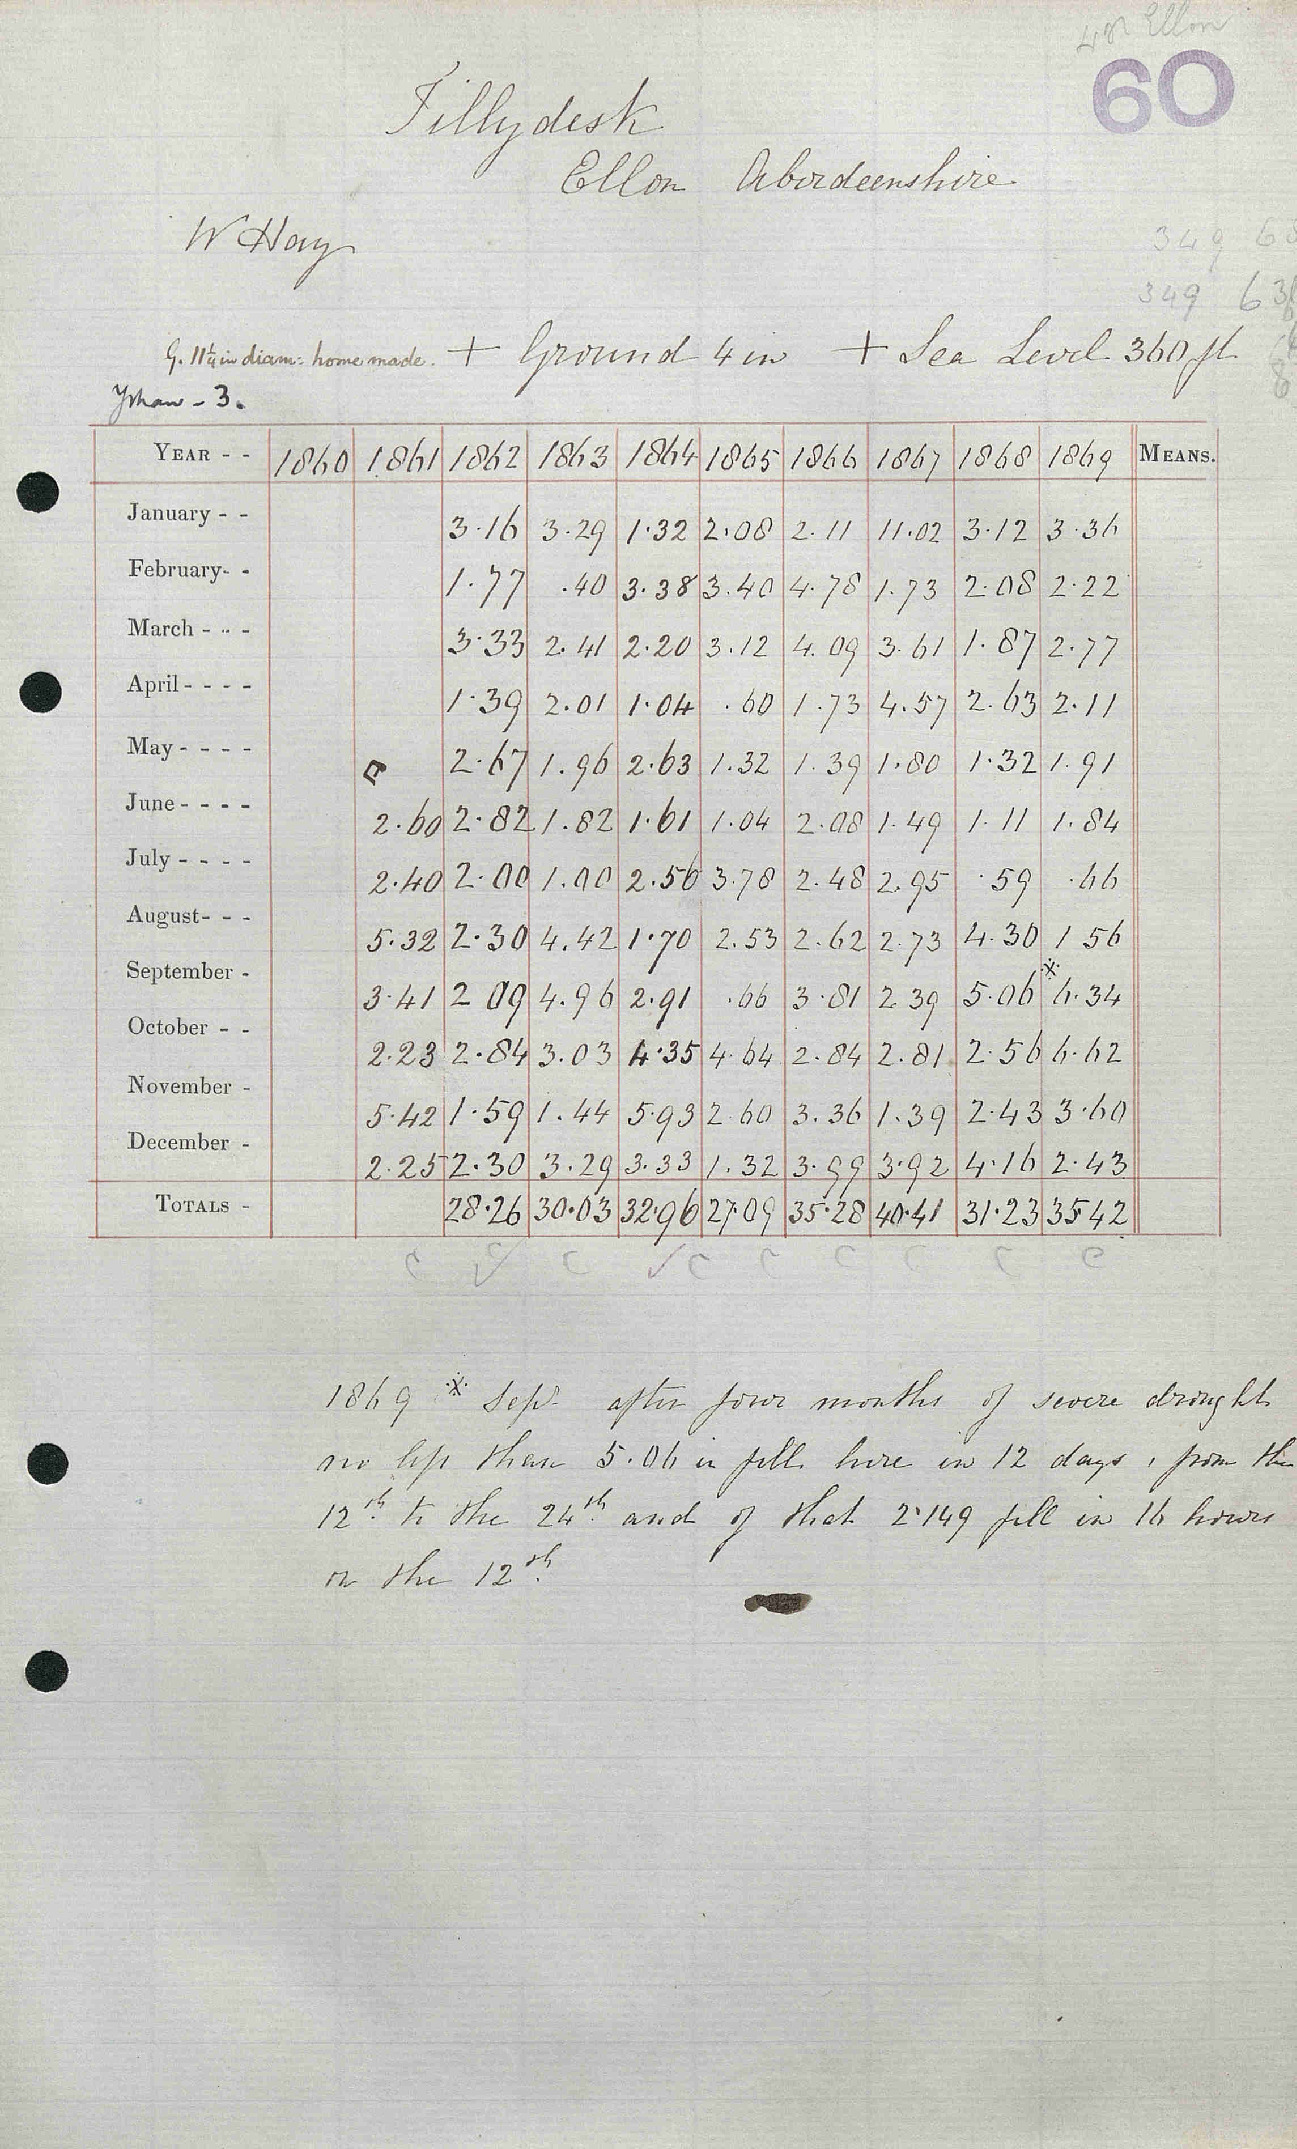 Ellon
60
Tillydesk
Ellon Aberdeenshire
W Hay
349 6
349 6
G. 11¼ in diam: home made. + Ground 4 in + Sea Level 360 ft
Ythan - 3.
YEAR - - 1860 1861 1862 1863 1864 1865 1866 1867 1868 1869 MEANS.
January - - 3.16 3.29 1.32 2.08 2.11 11.02 3.12 3.36
February- - 1.77 .40 3.38 3.40 4.78 1.73 2.08 2.22
March - - - 3.33 2.41 2.20 3.12 4.09 3.61 1.87 2.77
April - - - - 1.39 2.01 1.04 .60 1.73 4.57 2.63 2.11
May - - - - 2.67 1.96 2.63 1.32 1.39 1.80 1.32 1.91
June - - - - 2.60 2.82 1.82 1.61 1.04 2.08 1.49 1.11 1.84
July - - - - 2.40 2.00 1.00 2.56 3.78 2.48 2.95 .59 .66
August- - - 5.32 2.30 4.42 1.70 2.53 2.62 2.73 4.30 1 56
September - 3.41 2 09 4.96 2.91 .66 3.81 2 39 5.06 * 6.34
October - - 2.23 2.84 3.03 4.35 4.64 2.84 2.81 2.56 6.62
November - 5.42 1.59 1.44 5.93 2.60 3.36 1.39 2.43 3.60
December - 2.25 2.30 3.29 3.33 1.32 3.99 3.92 4.16 2.43
TOTALS - 28.26 30.03 32.96 27.09 35.28 40.41 31.23 35.42
c c c c c c c c c
1869 * Sept after four months of severe drought
no less than 5.06 in fell here in 12 days, from the
12th to the 24th and of that 2.149 fell in 16 hours
on the 12th